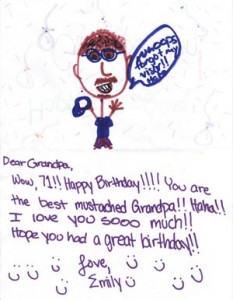 Awwoops
forgot my
visit!!
Haha
Dear Grandpa,
Wow, 71!! Happy Birthday!!!! You are
the best mustached Grandpa!! Haha!!
I love you sooo much!!
Hope you had a great birthday!!
Love,
Emily